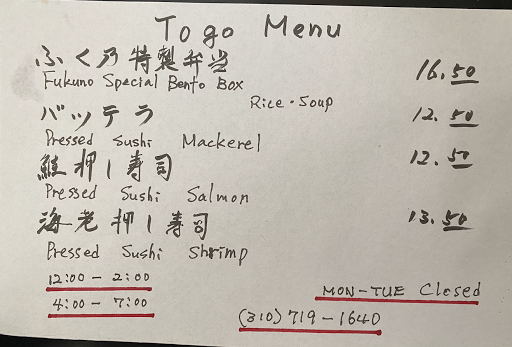 To go Menu
ふく乃特製弁当 16.50
Fukuno Special Bento Box
Rice・Soup
バッテラ 12.50
Pressed Sushi Mackerel
鮭押し寿司 12.50
Pressed Sushi Salmon
海老押し寿司 13.50
Pressed Sushi Shrimp
12:00 - 2:00
MON-TUE Closed
4:00 - 7:00
(310)719-1640